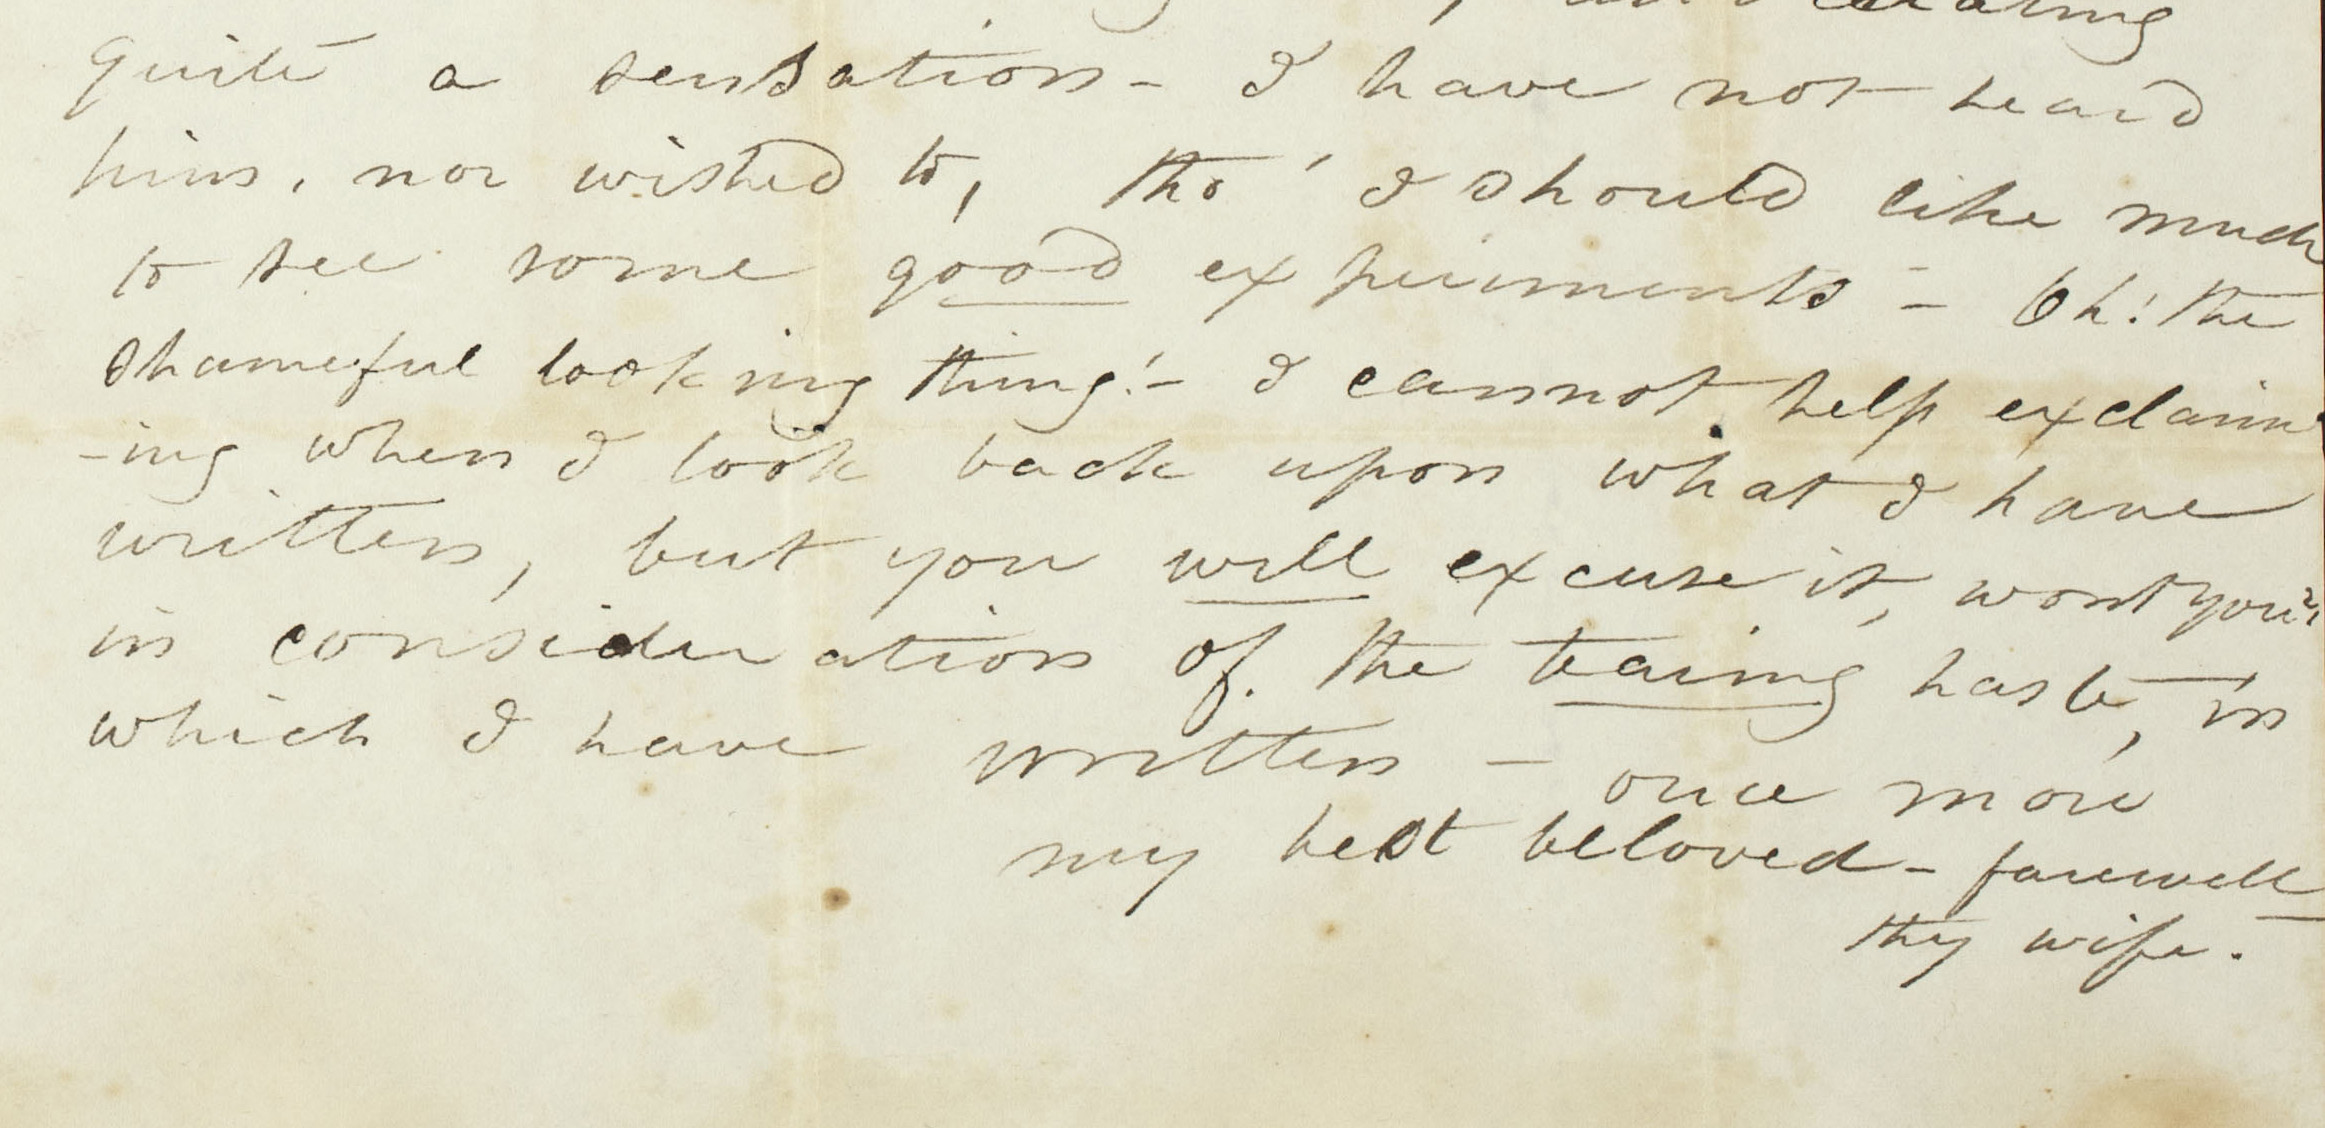 quite a sensation - I have not heard
him, nor wished to, tho' I should like much
to see some good experiments - Oh! the
shameful looking thing! - I cannot help exclaim
-ing when I look back upon what I have
written, but you will excuse it, wont you?
in consideration of the tearing haste, in
which I have written - once more
my best beloved - farewell
thy wife.